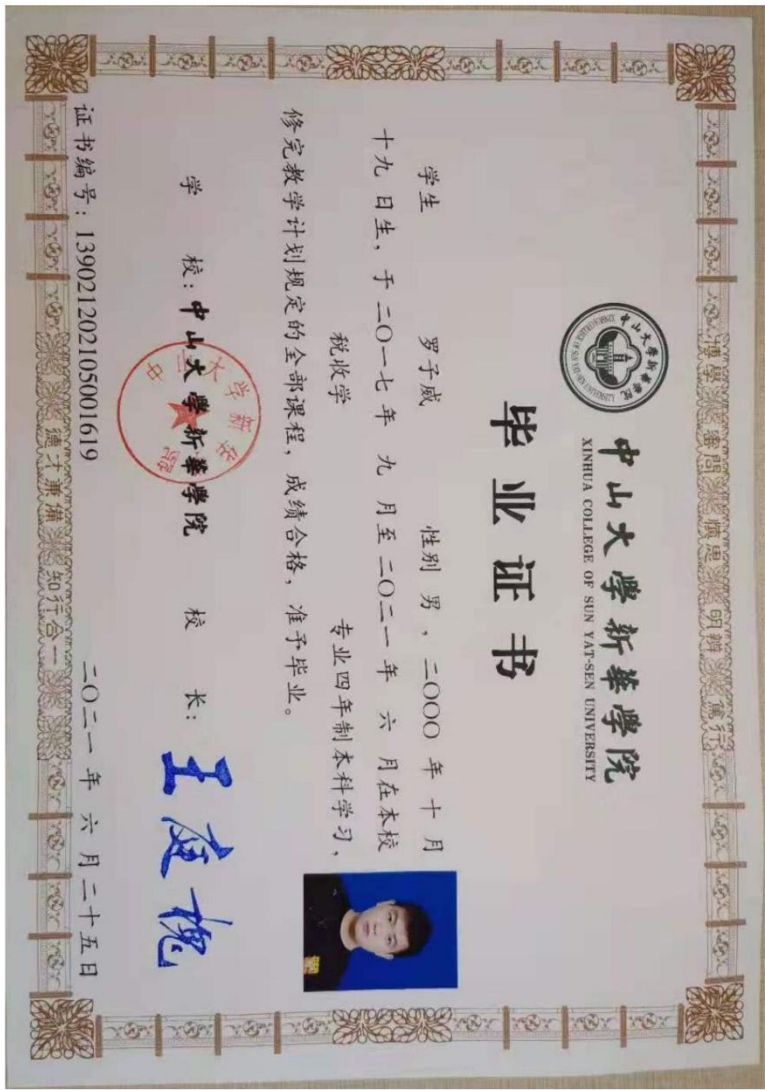 博學 審問 慎思 明辨 篤行
中山大學新華學院
XINHUA COLLEGE OF SUN YAT-SEN UNIVERSITY
毕业证书
学生 罗子威 性别 男 ，二〇〇〇 年 十 月
十九 日生，于 二〇一七 年 九 月至 二〇二一 年 六 月在本校
税收学 专业 四 年制 本 科学习，
修完教学计划规定的全部课程，成绩合格，准予毕业。
学 校：中山大學新華學院 校 长：王庭槐
证书编号：139021202105001619 二〇二一 年 六 月二十五日
德才兼備 知行合一